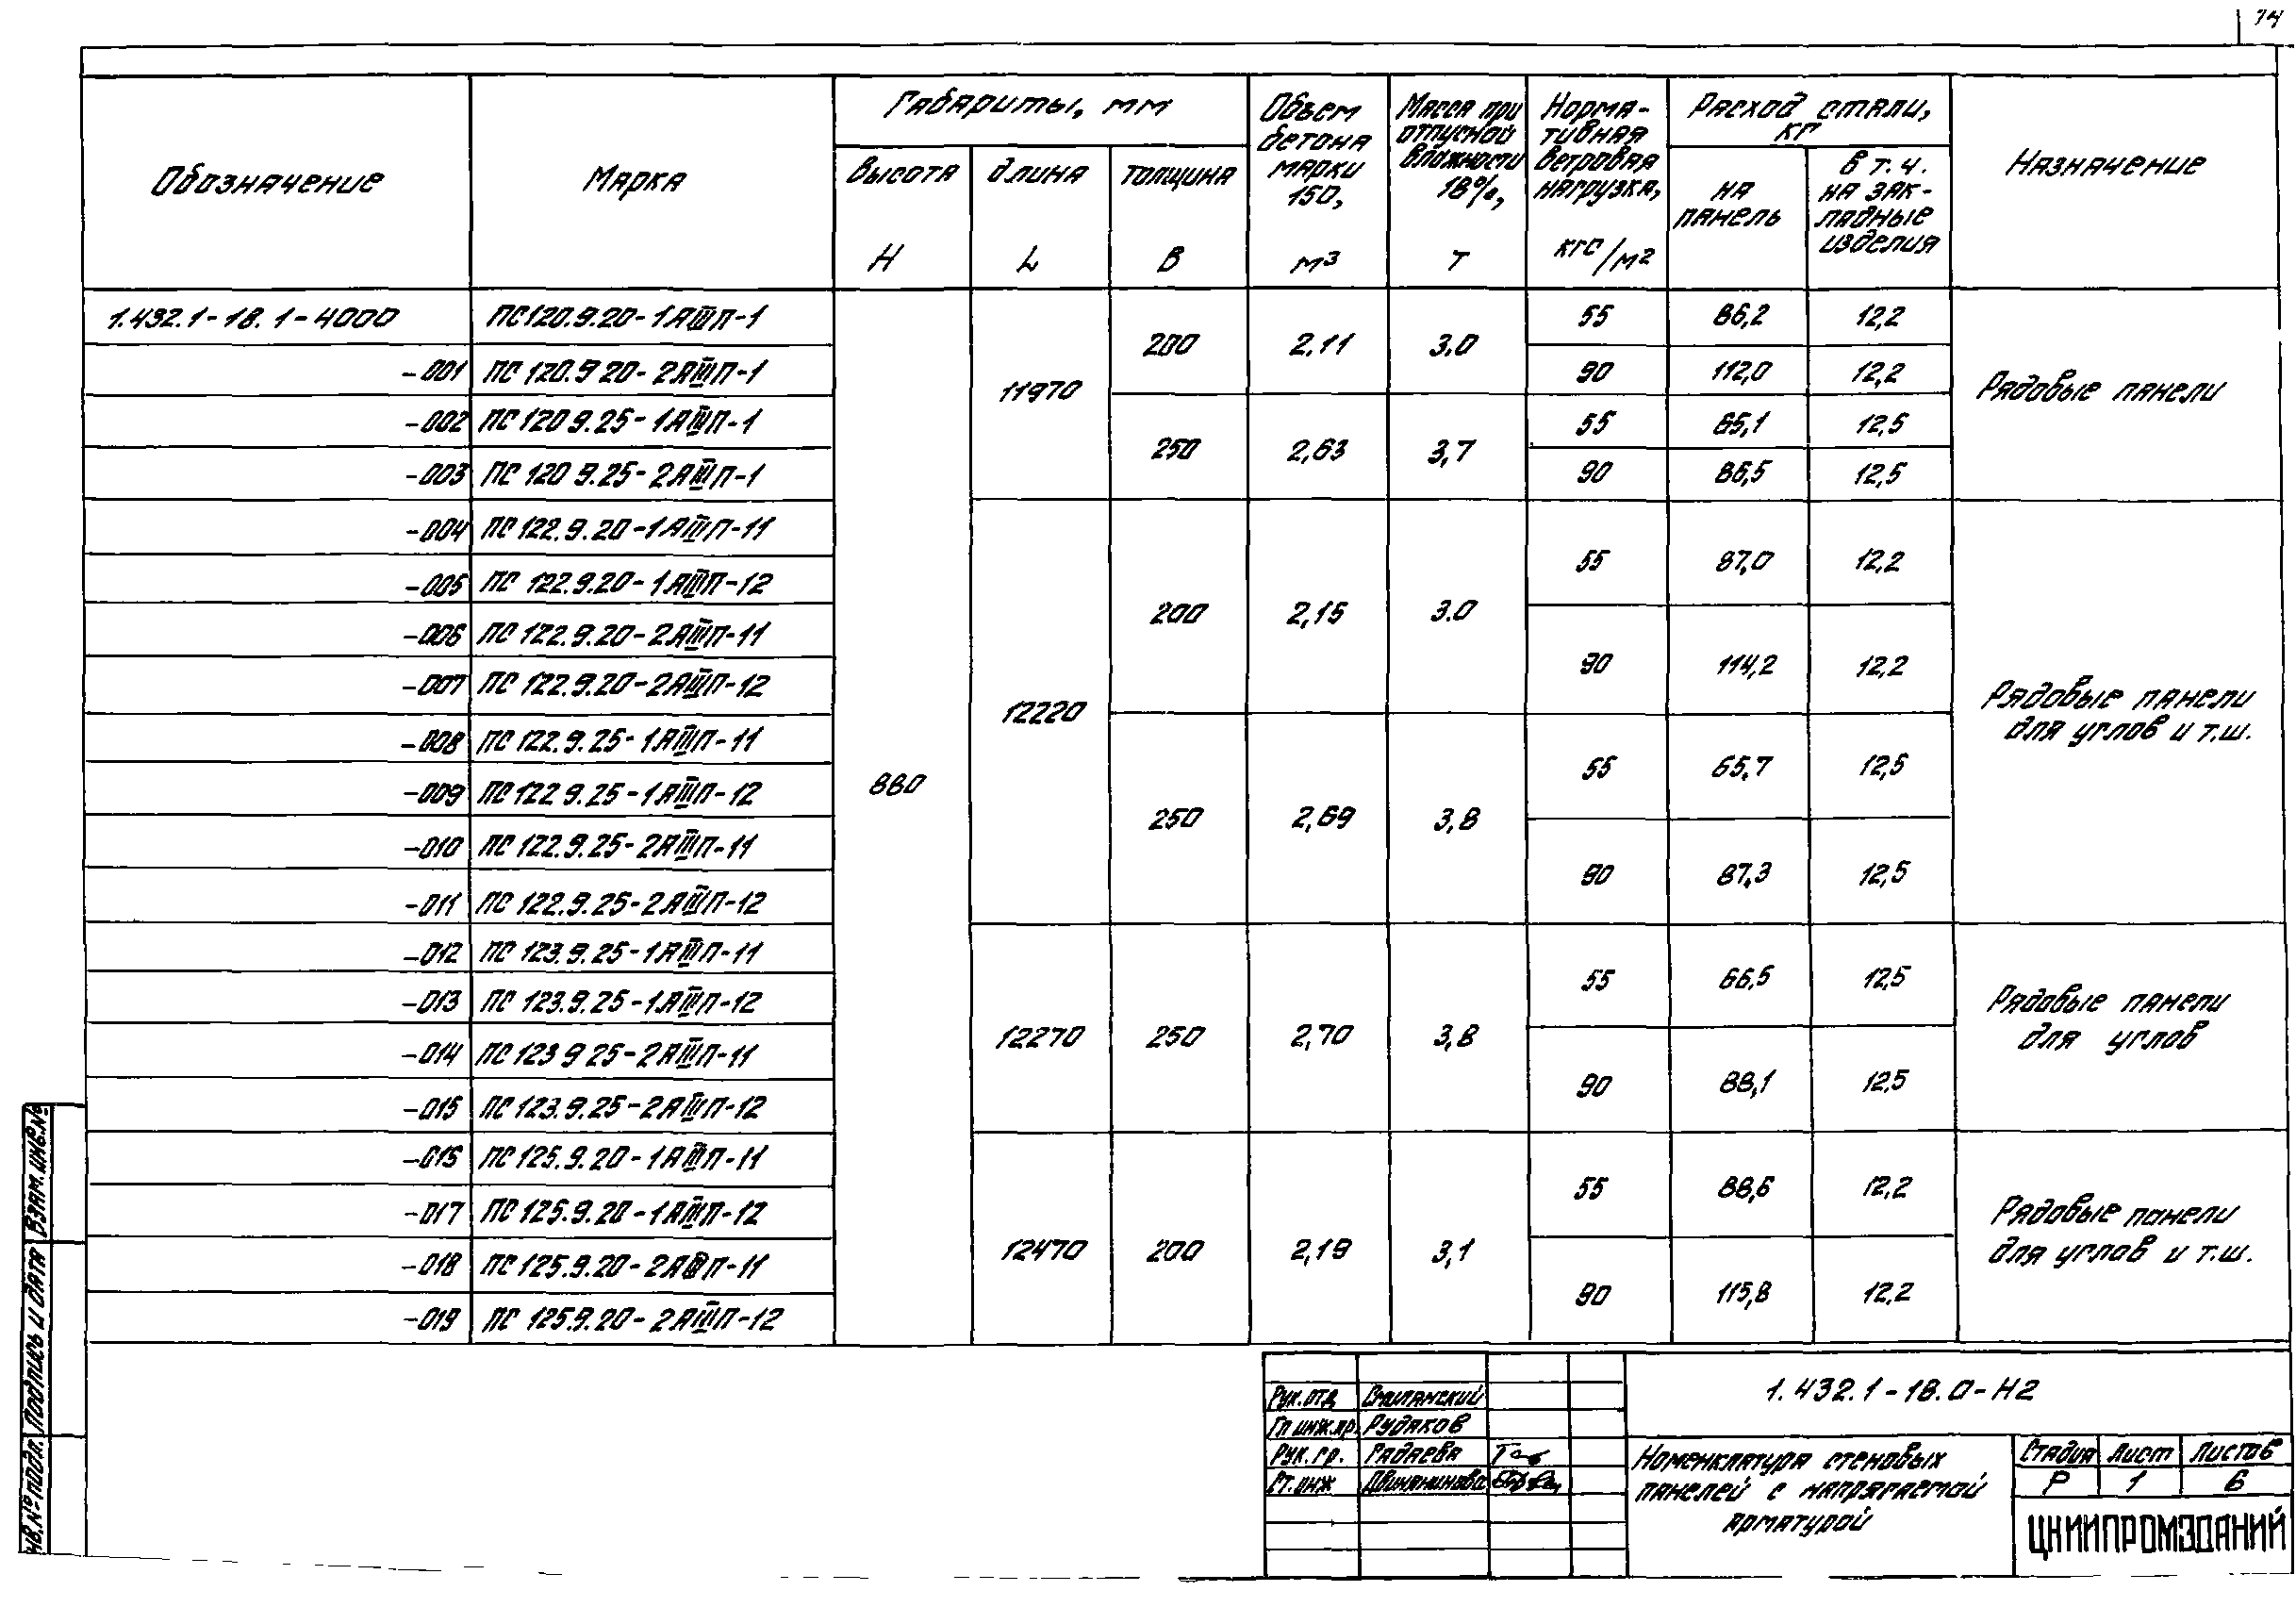 14
Обозначение
Марка
Габариты, мм
Высота
H
длина
L
толщина
B
Объем
бетона
марки
150,
м³
Масса при
отпускной
влажности
18%,
т
Норма-
тивная
ветровая
нагрузка,
кгс/м²
Расход стали,
кг
на
панель
в т.ч.
на зак-
ладные
изделия
Назначение
1.432.1-18.1-4000 ПС120.9.20-1АШП-1 55 86,2 12,2
200 2,11 3.0
-001 ПС 120.9 20-2АШП-1 90 112,0 12,2
11970 Рядовые панели
-002 ПС 120 9.25-1АШП-1 55 65,1 12,5
250 2,63 3,7
-003 ПС 120 9.25-2АШП-1 90 86,5 12,5
-004 ПС 122.9.20-1АШП-11
55 87,0 12,2
-005 ПС 122.9.20-1АШП-12
200 2,15 3.0
-006 ПС 122.9.20-2АШП-11
90 114,2 12,2
-007 ПС 122.9.20-2АШП-12
12220 Рядовые панели
для углов и т.ш.
-008 ПС 122.9.25-1АШП-11
55 65,7 12,5
880
-009 ПС 122 9.25-1АШП-12
250 2,69 3,8
-010 ПС 122.9.25-2АШП-11
90 87,3 12,5
-011 ПС 122.9.25-2АШП-12
-012 ПС 123.9.25-1АШП-11
55 66,5 12,5
-013 ПС 123.9.25-1АШП-12
12270 250 2,70 3,8 Рядовые панели
для углов
-014 ПС 123 9 25-2АШП-11
90 88,1 12,5
-015 ПС 123.9.25-2АШП-12
-016 ПС 125.9.20-1АШП-11
55 88,6 12,2
-017 ПС 125.9.20-1АШП-12
12470 200 2,19 3,1 Рядовые панели
для углов и т.ш.
-018 ПС 125.9.20-2АШП-11
90 115,8 12,2
-019 ПС 125.9.20-2АШП-12
Взам.инв.№
Подпись и дата
Инв.№ подл.
Рук.отд Смилянский
Гл инж.пр. Рудаков
Рук.гр. Радаева
Ст.инж Двинянинова
1.432.1-18.0-Н2
Номенклатура стеновых
панелей с напрягаемой
арматурой
Стадия Лист Листов
Р 1 6
ЦНИИПРОМЗДАНИЙ